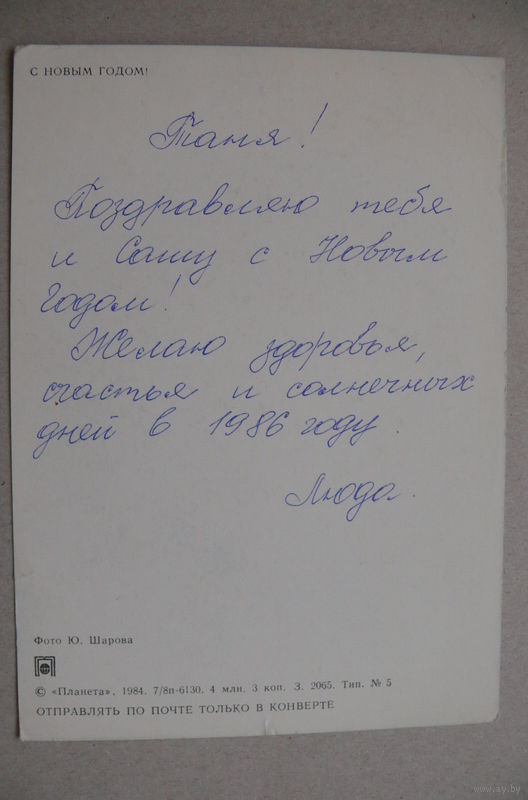 С НОВЫМ ГОДОМ!
Таня!
Поздравляю тебя
и Сашу с Новым
Годом!
Желаю здоровья,
счастья и солнечных
дней в 1986 году.
Люда.
Фото Ю. Шарова
© «Планета», 1984. 7/8п-6130. 4 млн. 3 коп. З. 2065. Тип. № 5
ОТПРАВЛЯТЬ ПО ПОЧТЕ ТОЛЬКО В КОНВЕРТЕ
www.ay.by